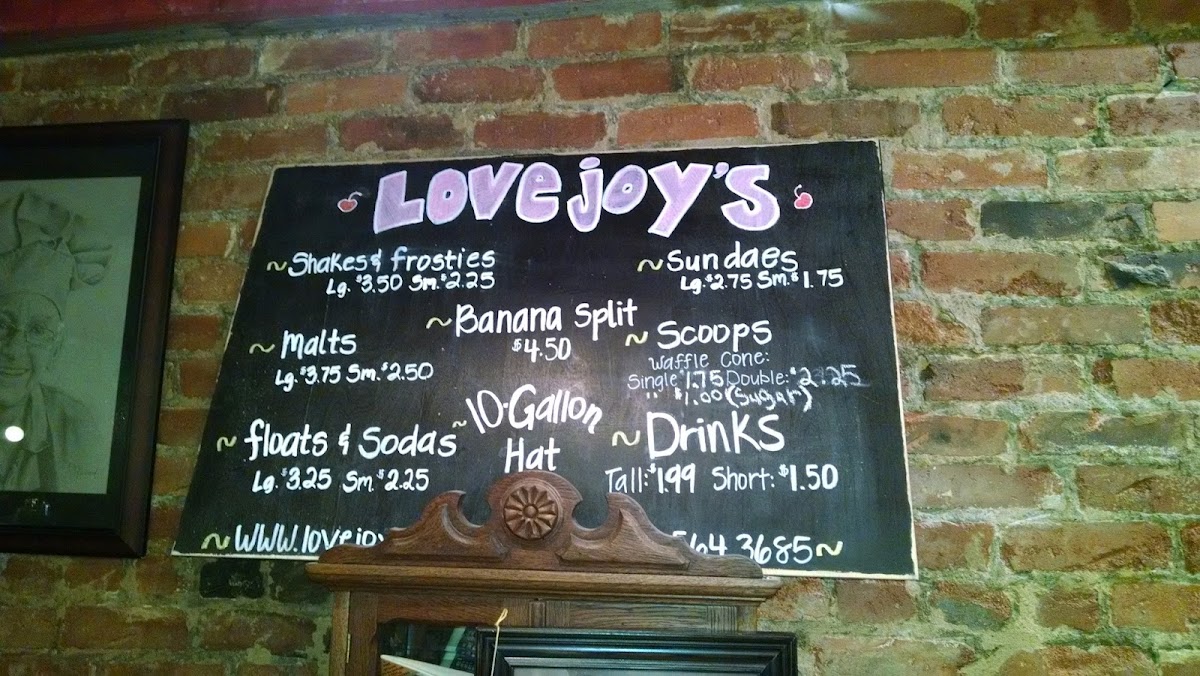 Lovejoy's
~Shakes & frosties
Lg. $3.50 Sm. $2.25
~Sundaes
Lg. $2.75 Sm. $1.75
~Banana Split
$4.50
~Malts
Lg. $3.75 Sm. $2.50
~Scoops
Waffle Cone:
Single $1.75 Double: $2.25
" $1.00 (Sugar)
~10-Gallon
Hat
~floats & Sodas
Lg. $3.25 Sm. $2.25
~Drinks
Tall: $1.99 Short: $1.50
~WWW.lovejoy
564.3685~